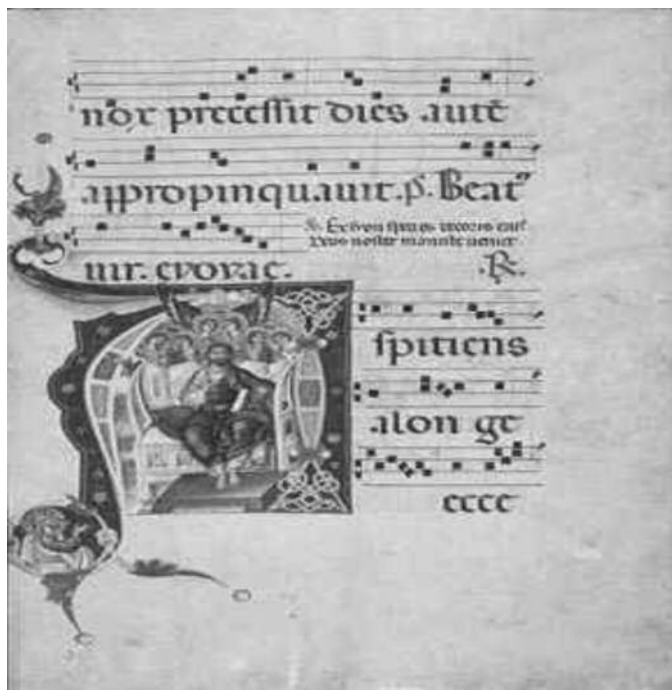 nox precessit dies autē
appropinquauit. p̄. Beatꝰ
uir. evovae.
Ex syon species decoris eius
Deus noster manifeste ueniet
.R.
Aspitiens
alon ge
ecce